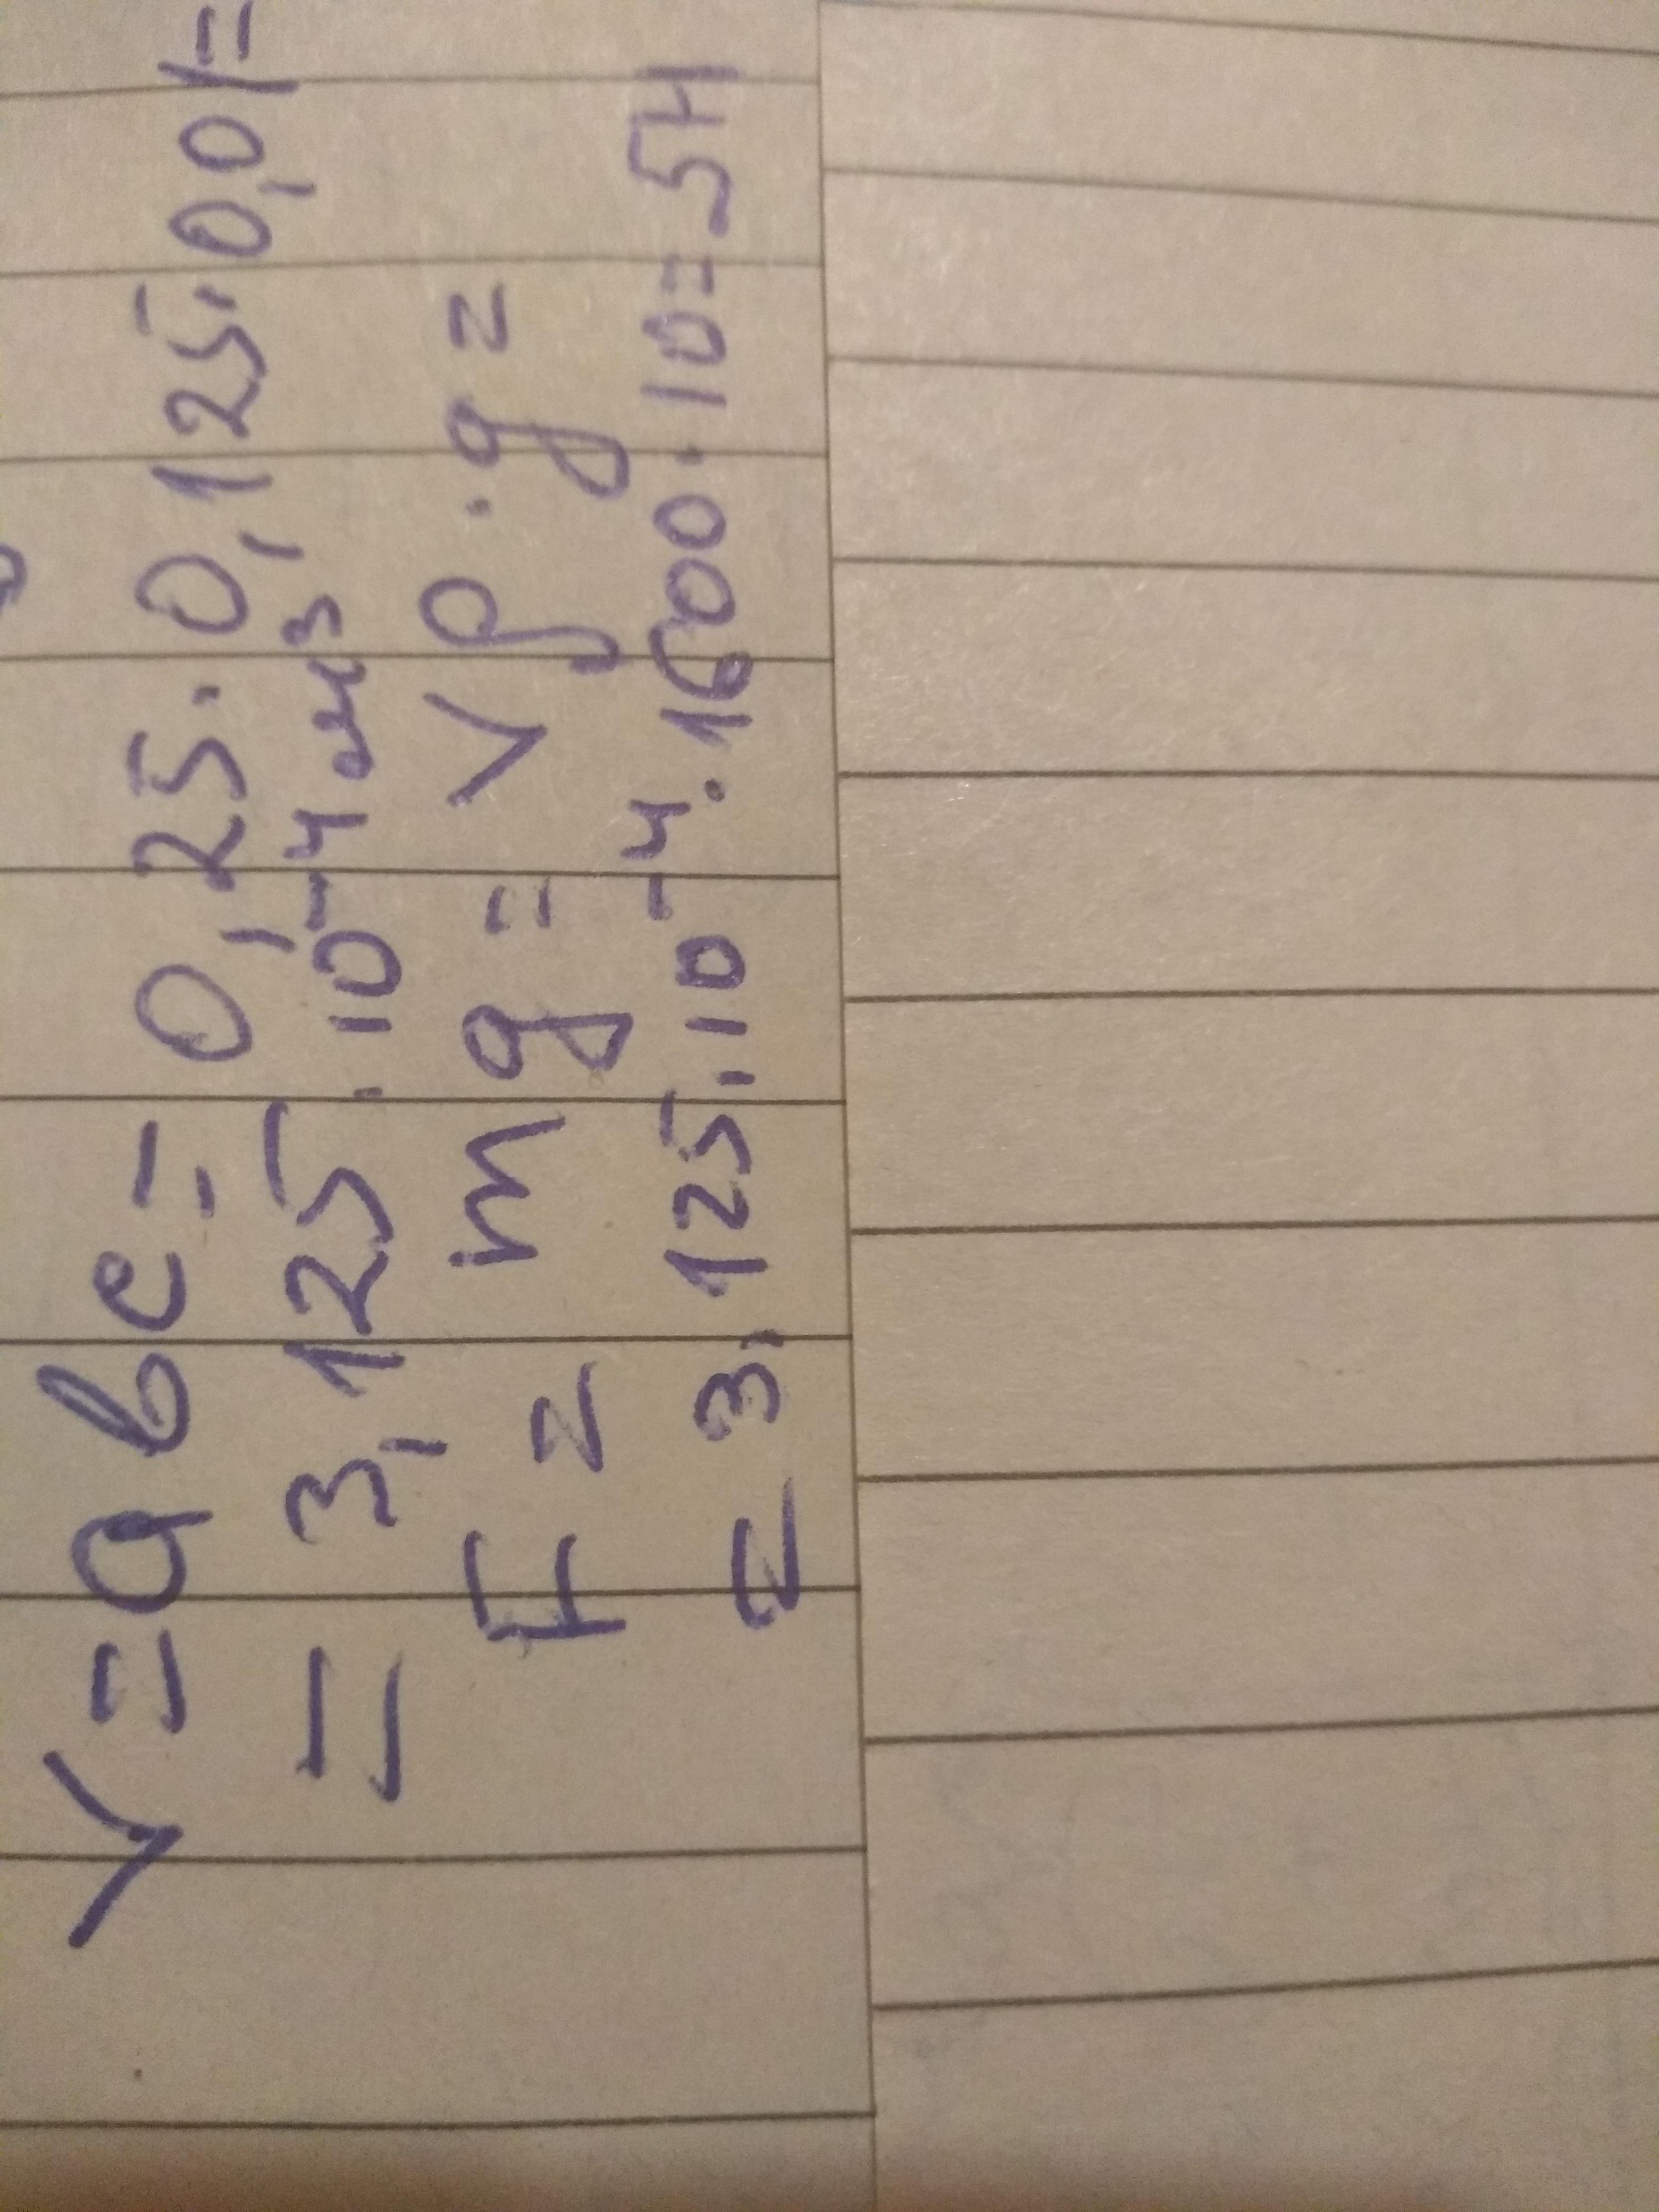 V = a b c = 0,25 · 0,125 · 0,01 =
= 3,125 · 10⁻⁴ м³
F = m g = V ρ · g =
= 3,125 · 10⁻⁴ · 1600 · 10 = 5H